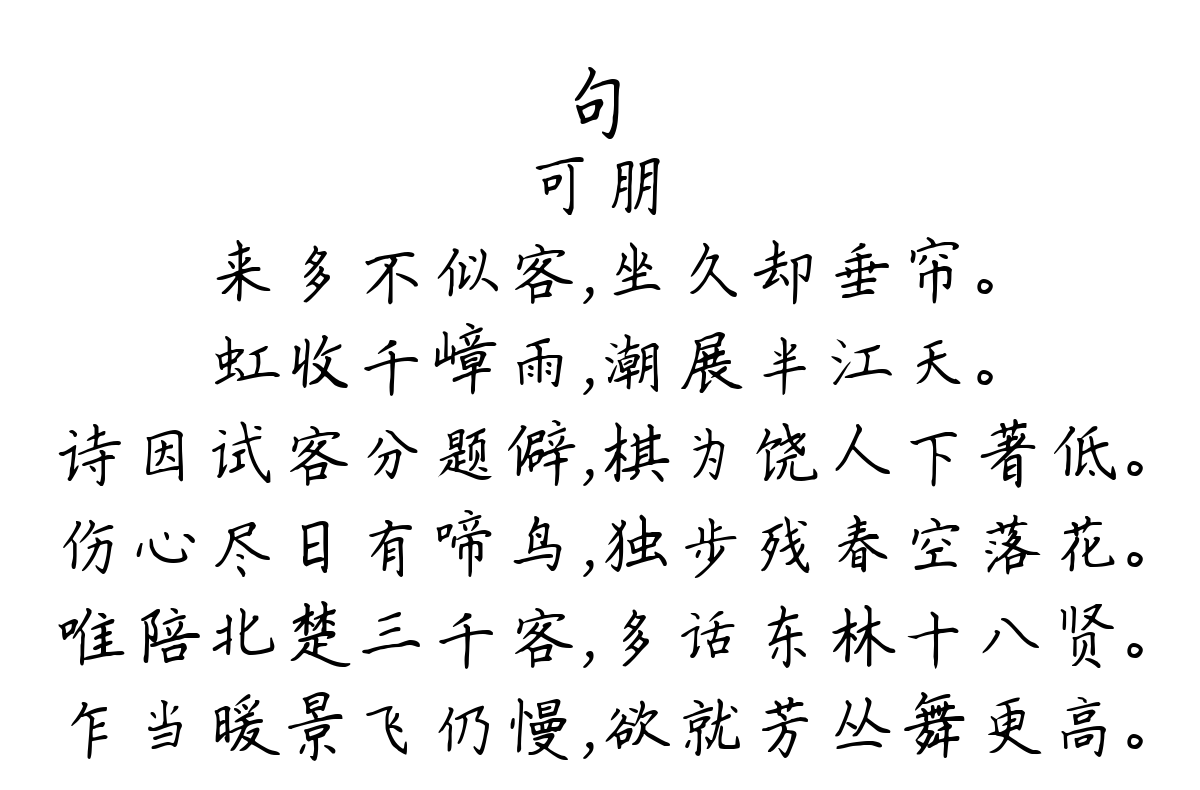 句
可朋
来多不似客,坐久却垂帘。
虹收千嶂雨,潮展半江天。
诗因试客分题僻,棋为饶人下著低。
伤心尽日有啼鸟,独步残春空落花。
唯陪北楚三千客,多话东林十八贤。
乍当暖景飞仍慢,欲就芳丛舞更高。